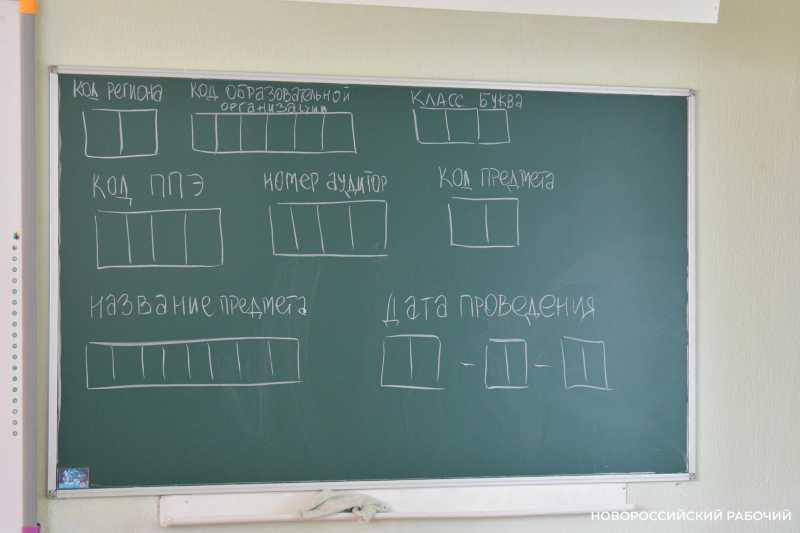 КОД РЕГИОНА
КОД ОБРАЗОВАТЕЛЬНОЙ
ОРГАНИЗАЦИИ
КЛАСС БУКВА
КОД ППЭ
НОМЕР АУДИТОР
КОД ПРЕДМЕТА
НАЗВАНИЕ ПРЕДМЕТА
ДАТА ПРОВЕДЕНИЯ
- -
НОВОРОССИЙСКИЙ РАБОЧИЙ